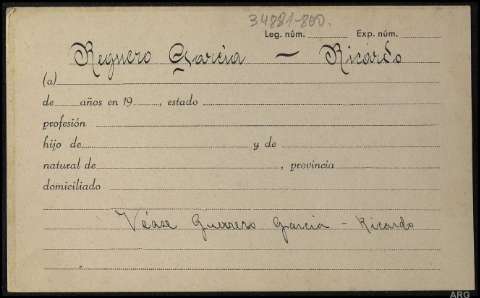 34881-800.
Leg. núm. Exp. núm.
Reguero García — Ricardo
(a)
de años en 19 , estado
profesión
hijo de y de
natural de , provincia
domiciliado
Véase Guerrero García - Ricardo
ARG